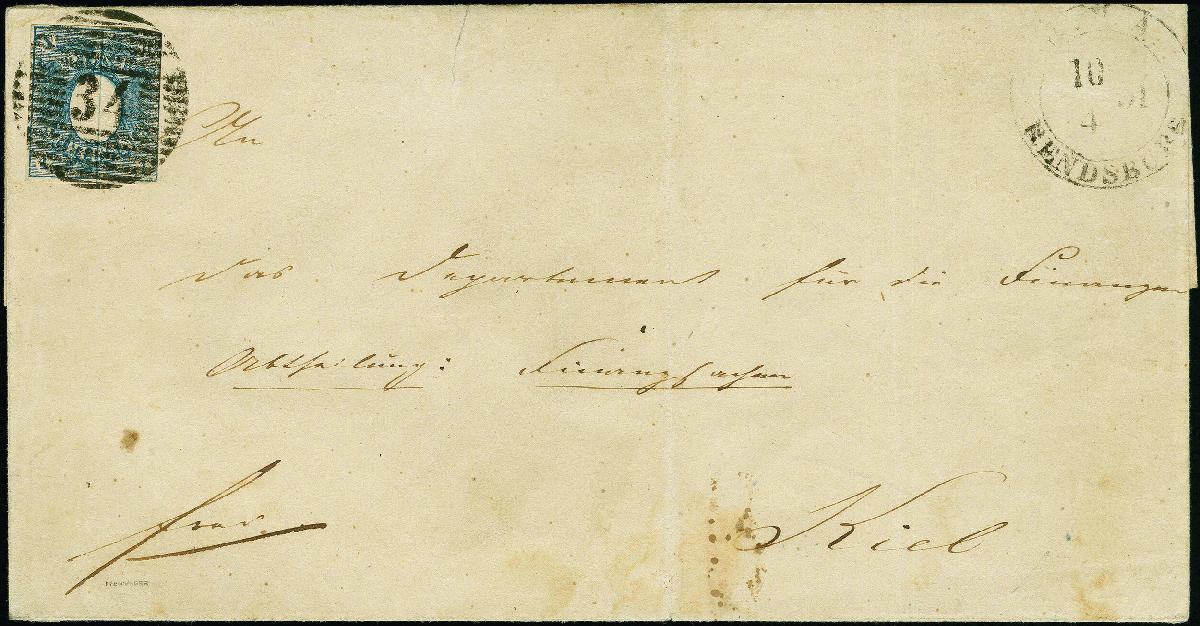 34
10
4
RENDSBURG
An
das Departement für die Finanzen
Abtheilung: Finanzsachen
frei
Kiel